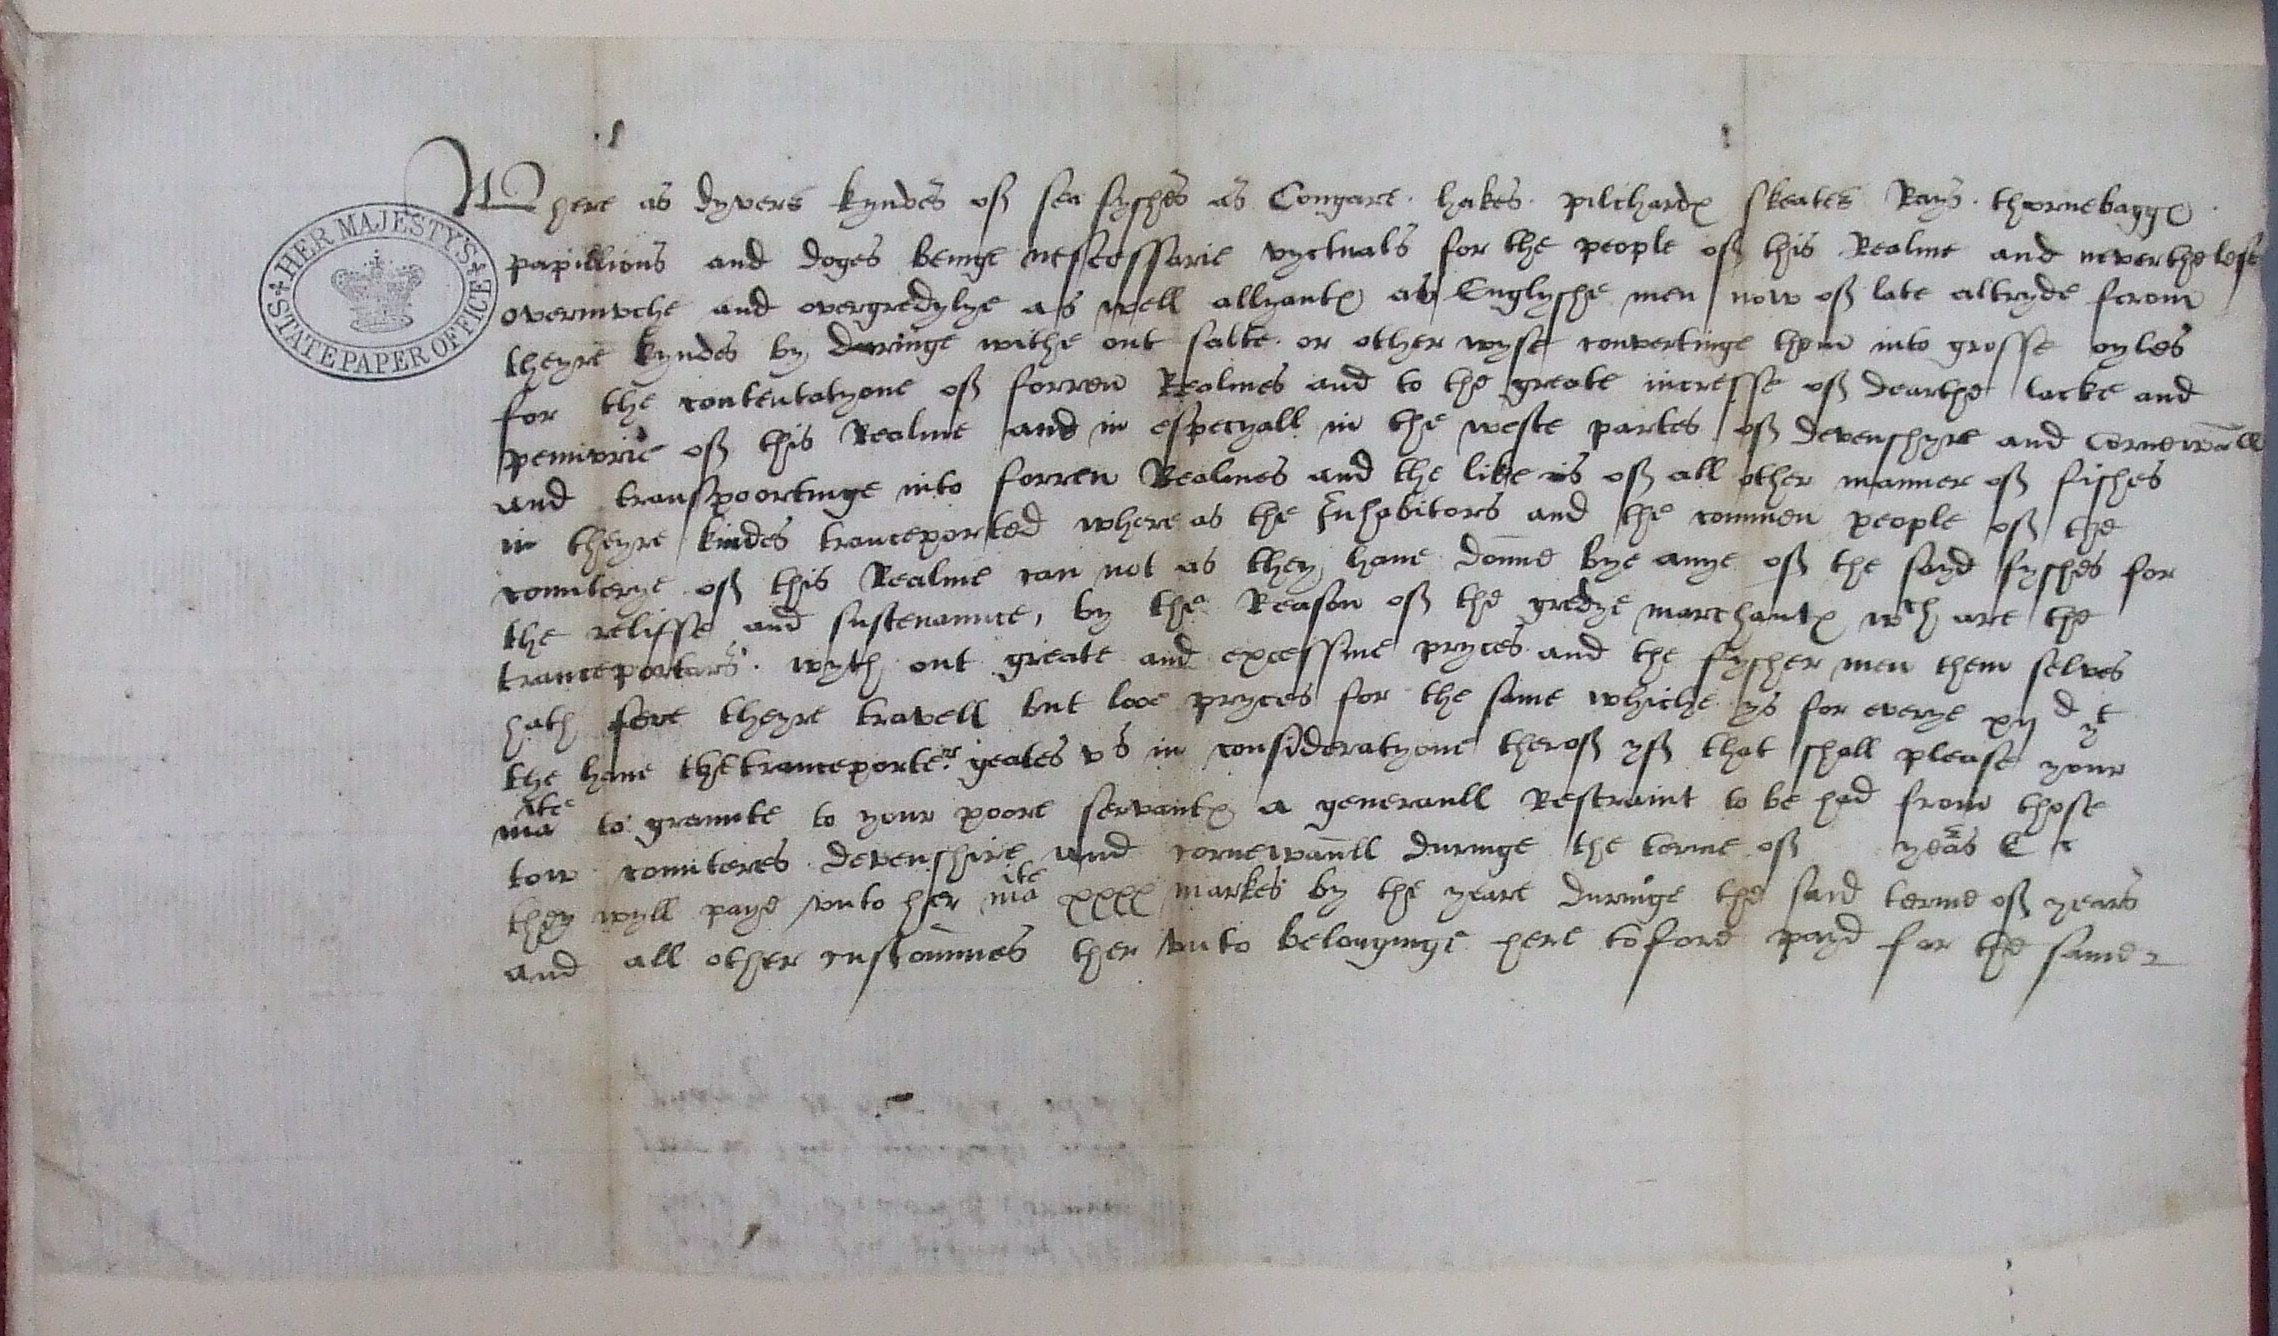 HER MAJESTY'S
STATE PAPER OFFICE
Where as dyvers kyndes off sea fysches as Congare. hakes. pilchardes skeates Rays. thornebagges
papillions and doges beinge nessessarie vyctuals for the people off this Realme and neverthelesse
overmvche and overgredylye as well allyantes as Englysche men now off late altryde frome
theyre kyndes by dryinge withe out salte. or other wyse convertinge them into grosse oyles
for the contentatyone off forren Realmes and to the greate incresse off dearthe lacke and
penivrie off this Realme and in especyall in the weste partes off devenschyre and Cornewall
and transpoortinge into forren Realmes and the like is off all other manner off fisches
in theyre kindes tranceported where as the Inhabitors and the commen people off the
comiterye off this Realme can not as they have donne bye anye off the sayd fysches for
the relisse and sustenaunce, by the Reason off the gredye marchantes wch are the
tranceportars. wyth out greate and excessive pryces and the fyscher men them selves
hath fore theyre travell but loœ pryces for the same whiche ys for everye xij d yt
the have the tranceporters geates vs in consideratyone theroff yff that schall please your
mate to graunte to your poore servantes a generaull Restraint to be had from those
tow comiteres devenshire and cornewaull duringe the terme off yeas
they wyll paye vnto her mate xxxx markes by the yeare duringe the said terme off years
and all other custommes ther vnto belonginge here tofore payd for the same